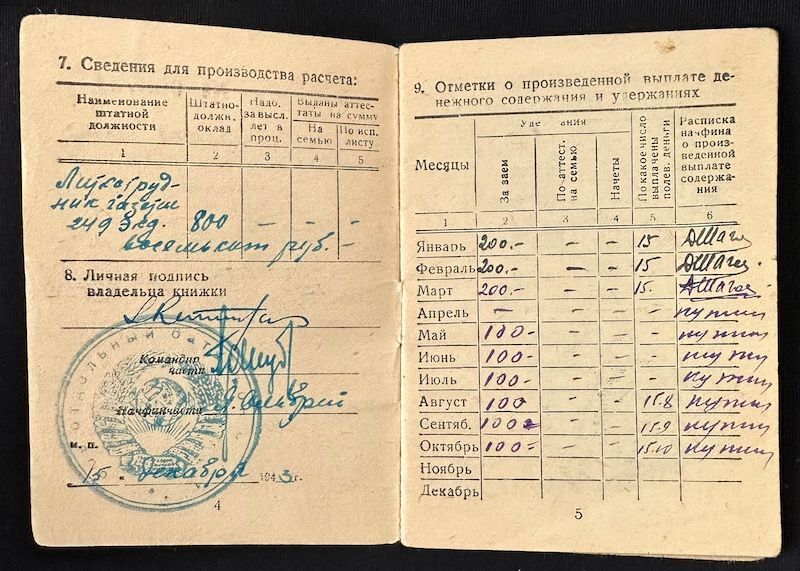 7. Сведения для производства расчета:
Наименование штатной должности
Штатно-должн. оклад
Надо. за высл. лет в проц.
Выданы аттестаты на сумму
На семью
По исп. листу
1 2 3 4 5
Литсотруд-
ник газеты
249 Э кд. 800 - - -
восемьсот руб. -
8. Личная подпись
владельца книжки
Командир
части
Начфинчасти
м. п.
15 " декабря 1943 г.
4
9. Отметки о произведенной выплате де-
нежного содержания и удержаниях
Месяцы
Уде ания
За заем
По аттест. на семью
Начеты
По какое число выплачены полев. деньги
Расписка начфина о произведенной выплате содержания
1 2 3 4 5 6
Январь 200.- - - 15
Февраль 200.- - - 15
Март 200.- - - 15.
Апрель - - -
Май 100- - -
Июнь 100- - -
Июль 100- - -
Август 100 - - 15.8
Сентяб. 100= - - 15.9
Октябрь 100= - - 15.10
Ноябрь
Декабрь
5